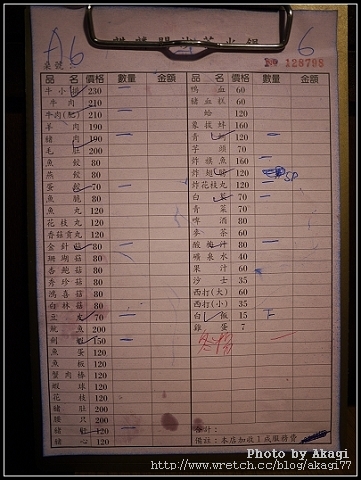 A6
6
桌號
No 128798
價格 數量 金額
價格 數量 金額
牛小排 230 一
牛肉 210
牛肉(肥) 210 一
羊肉 190
豬肉 190 一
毛肚 200
魚餃 80
燕餃 80
蛋餃 70 一
魚脆 80
魚丸 120
花枝丸 120
香菇貢丸 120
金針菇 80 一
珊瑚菇 80
杏鮑菇 80
秀珍菇 80
鴻喜菇 80
白林菇 80
豆皮 70 一
魷魚 200
150 一
魚蛋 120
魚板 120
蟹肉棒 120
蝦球 120
花枝 120
豬肚 200
腰只 200
豬 120 一
豬心 120
鴨血 60
豬血糕 60
蛤 120
象拔蚌 160
青 120 一
芋頭 70
炸旗魚 160 一
炸翅 120 SP
炸花枝丸 120 一
白菜 70 一
青菜 70
啤酒 80
麥茶 60
酸梅汁 80 一
礦泉水 40
果汁 60
沙士 35
西打(大) 60
西打(小) 35
白飯 15 下
雞蛋 7
合計:
備註:本店加收1成服務費
Photo by Akagi
http://www.wretch.cc/blog/akagi77